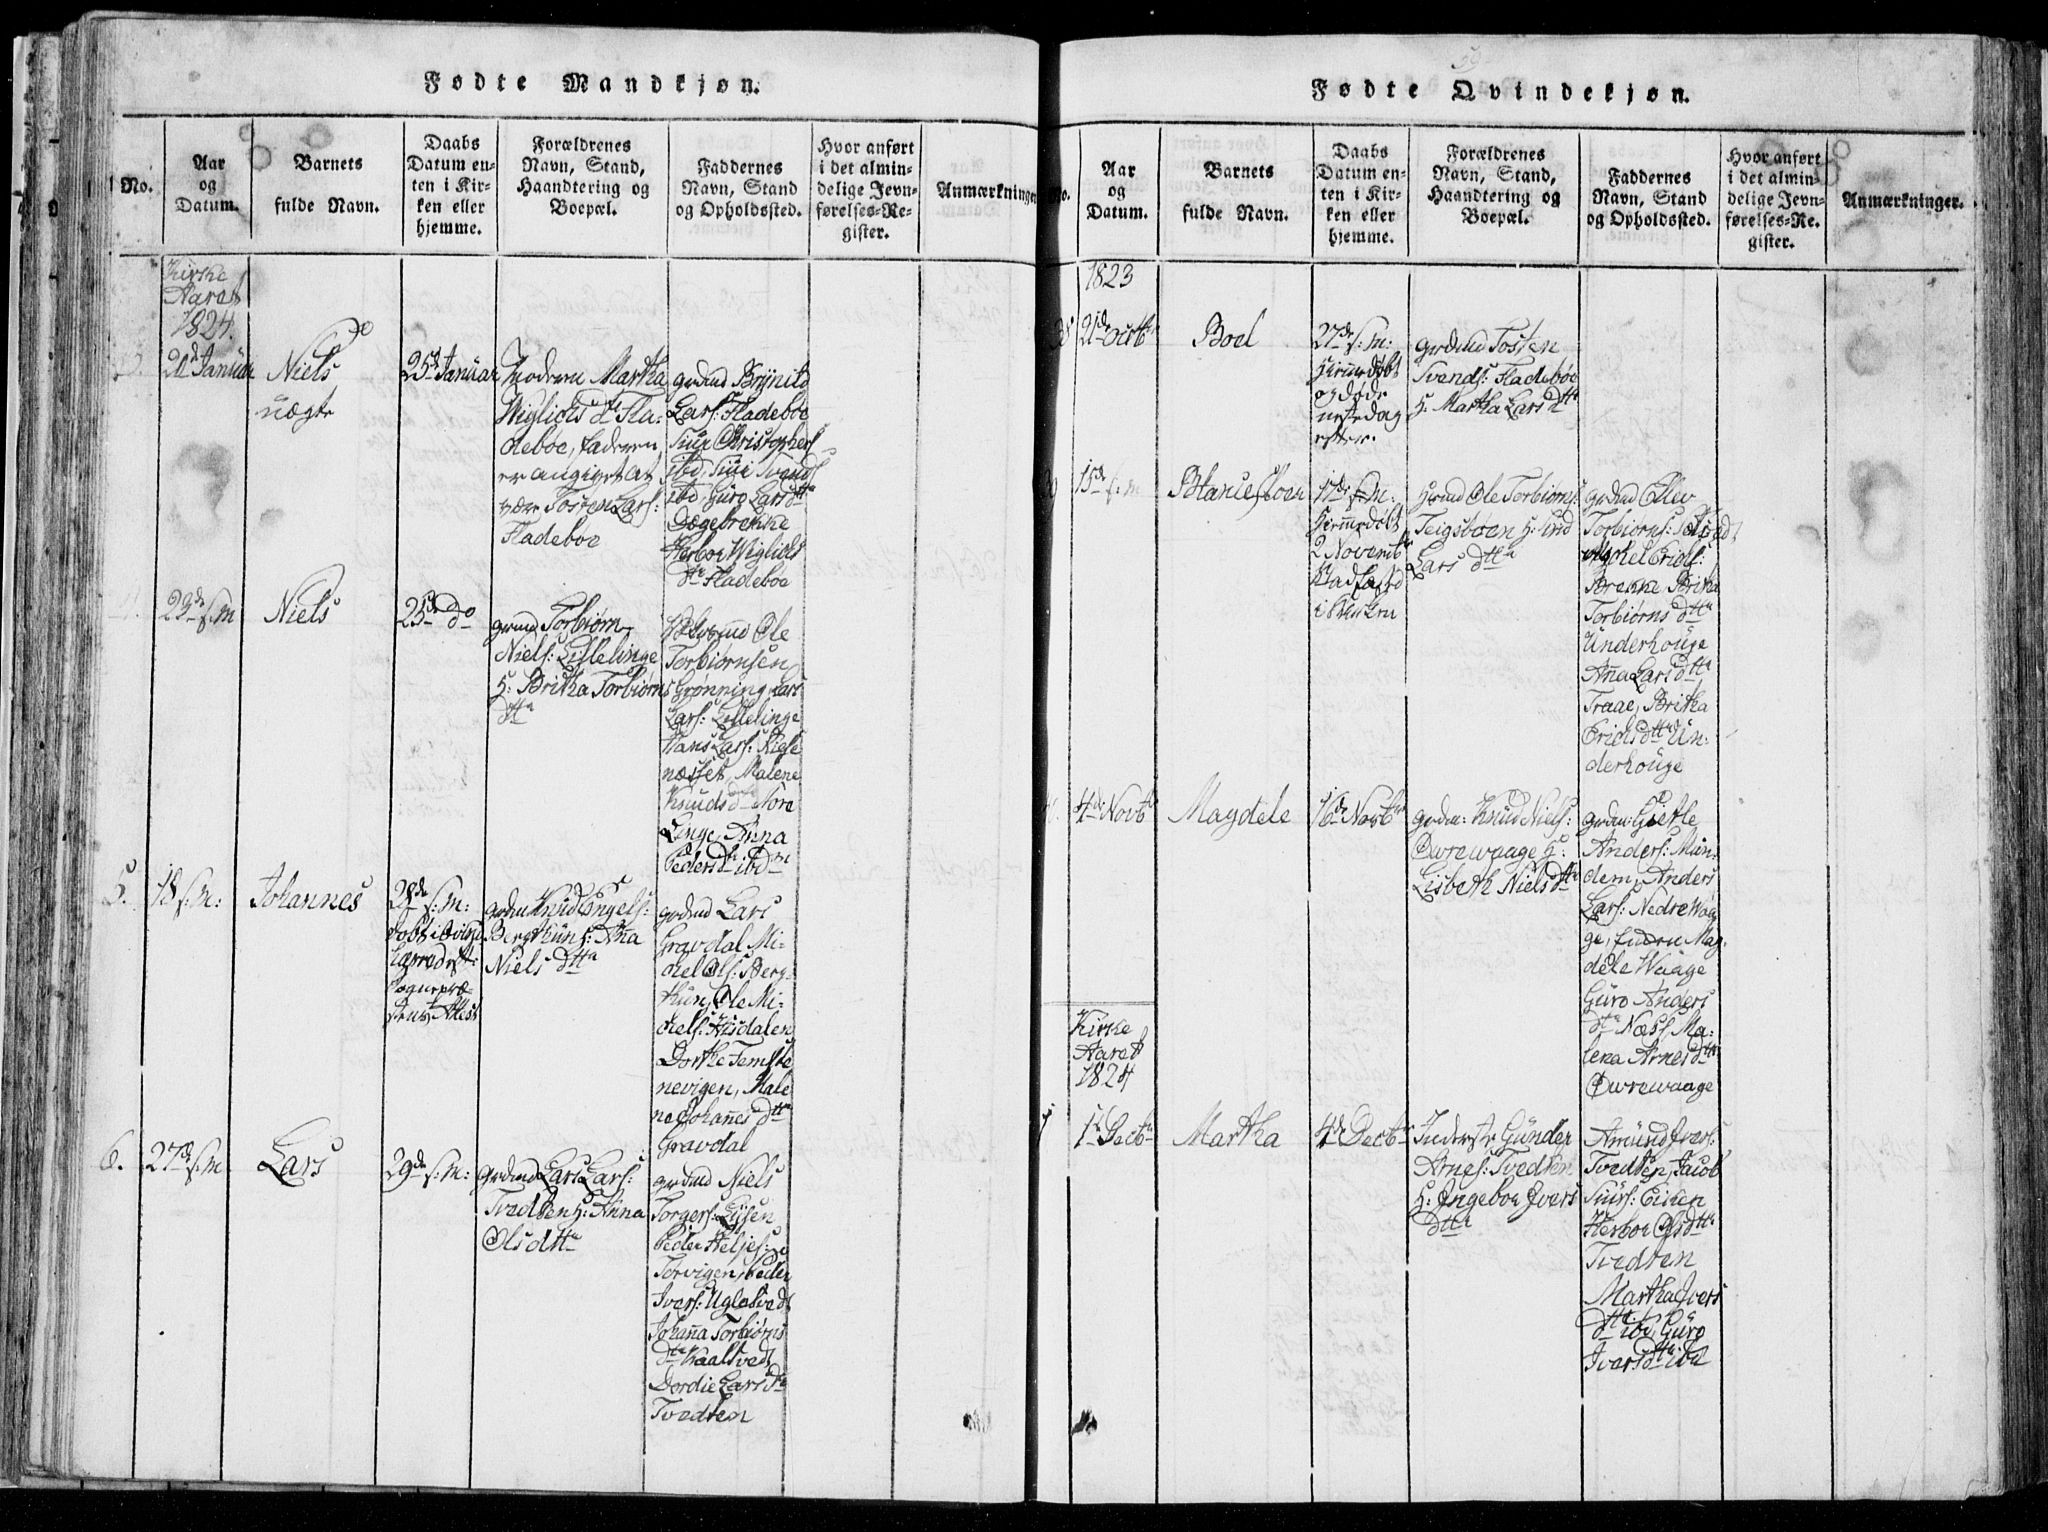 Fødte Mandkjøn.
No.
Aar
og
Datum.
Barnets
fulde Navn.
Daabs
Datum en-
ten i Kir-
ken eller
hjemme.
Forældrenes
Navn, Stand,
Haandtering og
Boepæl.
Faddernes
Navn, Stand
og Opholdssted.
Hvor anført
i det almin-
delige Jevn-
førelses-Re-
gister.
Anmærkninger
Kirke
Aaret
1824.
Januar
Niels
uægte
25de Januar
Moderen Martha
Wiglichs dtr Fla-
deboe, faderen
er angivet at
være Tosten Lars:
Fladeboe
grdmd Brynild
Lars: Fladeboe
Siur Christophers
ibd, Siur Svends
ibd, Guro Lars dtr
Døgebrekke
Herboe Wiglichs
dtr Fladeboe
23de s:m
Niels
25de do
grmd Torbiørn
Niels: Lillelinge
H: Britha Torbiørns
dtr
Ole
Torbiørnsen
Grønning, Lars
Lars: Lillelinge
Hans Lars:
næsset, Malene
Knuds dtr Nore
Linge, Anna
Peders dtr ibdm
5.
18 s:m:
Johannes
28de s:m:
grdm Knud Engels:
Bergthun H: Anna
Niels dtr
grdmd Lars
Gravdal Mi-
chel Ols: Berg-
thun, Ole Mi-
chels:
Dorthe
nevigen, Male-
ne Johannes dtr
Gravdal
6.
27de s:m
Lars
29de s:m:
grdmd Lars Lars:
Tvedten H: Anna
Ols dtr
grdmd Niels
Torgers:
Peder Heljes:
Torvigen, Peder
Ivers: Ugletvedt
Johanna Torbiørns
dtr Kaaltvedt
Dordie Lars dtr
Tvedten
59
Fødte Qvindekjøn.
No.
Aar
og
Datum.
Barnets
fulde Navn.
Daabs
Datum en-
ten i Kir-
ken eller
hjemme.
Forældrenes
Navn, Stand,
Haandtering og
Boepæl.
Faddernes
Navn, Stand
og Opholdssted.
Hvor anført
i det almin-
delige Jevn-
førelses-Re-
gister.
Anmærkninger.
1823
38
21de Octbr
Boel
27de s:m:
hjemmedøbt
og døde
neste dag
efter.
grdmd Tosten
Svends: Fladeboe
H: Martha Lars dtr
15de s:m
17de s:m:
hjemmedøbt
2 Novembr
Stadfæstd
i Kirken
Ole Torbiørns:
Teigsboen H:
Lars dtr
grdmd Ellev
Torbiørns:
Michel Erichs:
Brekke Britha
Torbiørns dtr
Underhouge
Anna Lars dtr
Traae, Britha
Erichs dtr Un-
derhouge
4de Novbr
Magdele
16de Novbr
grdm: Knud Niels:
Øvrewaage H:
Lisbeth Niels dtr
grdm: Gietle
Anders: Mun-
dem, Anders
Lars: Nedre Waa-
ge, Mag-
dele Waage
Guro Anders
dtr Næss, Ma-
lena Arnes dtr
Øvrewaage
Kirke
Aaret
1824
1
1ste Decbr
Martha
4de Decbr
Inderste Gunder
Arnes: Tvedten
H: Ingeboe Ivers
dtr
Amund Ivers:
Tvedten, Jacob
Siurs: Eichen
Herboe Ols dtr
Tvedten
Martha Ivers
dtr ibd, Guro
Ivers dtr ibd